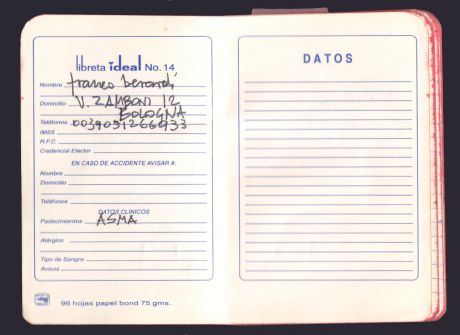 libreta ideal No. 14
Nombre franco berardi
Domicilio V. ZAMBONI 12
BOLOGNA
Teléfonos 0039051266933
IMSS
R.F.C.
Credencial Elector
EN CASO DE ACCIDENTE AVISAR A:
Nombre
Domicilio
Teléfonos
DATOS CLINICOS
Padecimientos ASMA
Alérgico
Tipo de Sangre
Avisos
96 hojas papel bond 75 gms.
DATOS